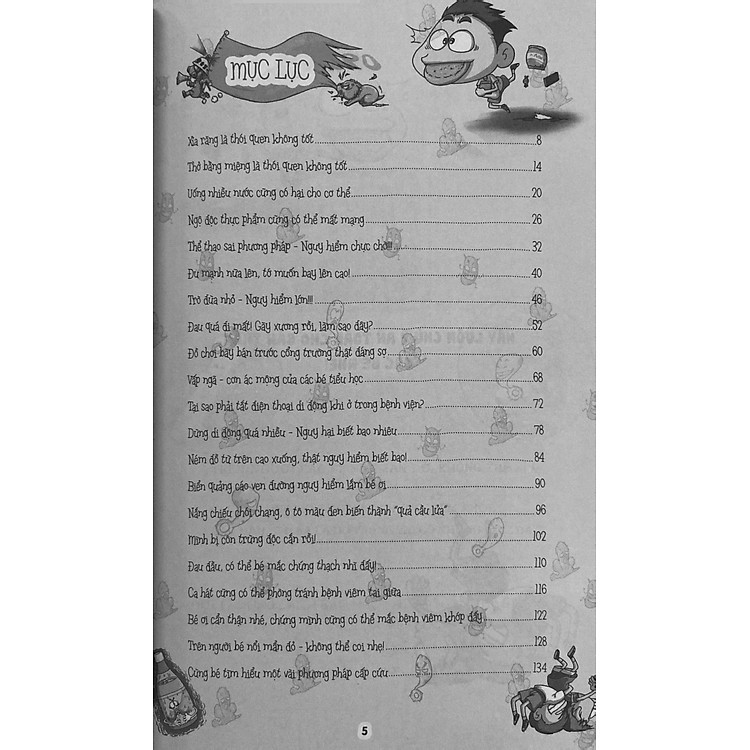 MỤC LỤC
Xỉa răng là thói quen không tốt 8
Thở bằng miệng là thói quen không tốt 14
Uống nhiều nước cũng có hại cho cơ thể 20
Ngộ độc thực phẩm cũng có thể mất mạng 26
Thể thao sai phương pháp - Nguy hiểm chực chờ!!! 32
Đu mạnh nữa lên, tớ muốn bay lên cao! 40
Trò đùa nhỏ - Nguy hiểm lớn!!! 46
Đau quá đi mất! Gãy xương rồi, làm sao đây? 52
Đồ chơi bày bán trước cổng trường thật đáng sợ 60
Vấp ngã - cơn ác mộng của các bé tiểu học 68
Tại sao phải tắt điện thoại di động khi ở trong bệnh viện? 72
Dùng di động quá nhiều - Nguy hại biết bao nhiêu 78
Ném đồ từ trên cao xuống, thật nguy hiểm biết bao! 84
Biển quảng cáo ven đường nguy hiểm lắm bé ơi 90
Nắng chiếu chói chang, ô tô màu đen biến thành "quả cầu lửa" 96
Mình bị côn trùng độc cắn rồi! 102
Đau đầu, có thể bé mắc chứng thạch nhĩ đấy! 110
Ca hát cũng có thể phòng tránh bệnh viêm tai giữa 116
Bé ơi cẩn thận nhé, chúng mình cũng có thể mắc bệnh viêm khớp đấy 122
Trên người bé nổi mẩn đỏ - không thể coi nhẹ! 128
Cùng bé tìm hiểu một vài phương pháp cấp cứu 134
5